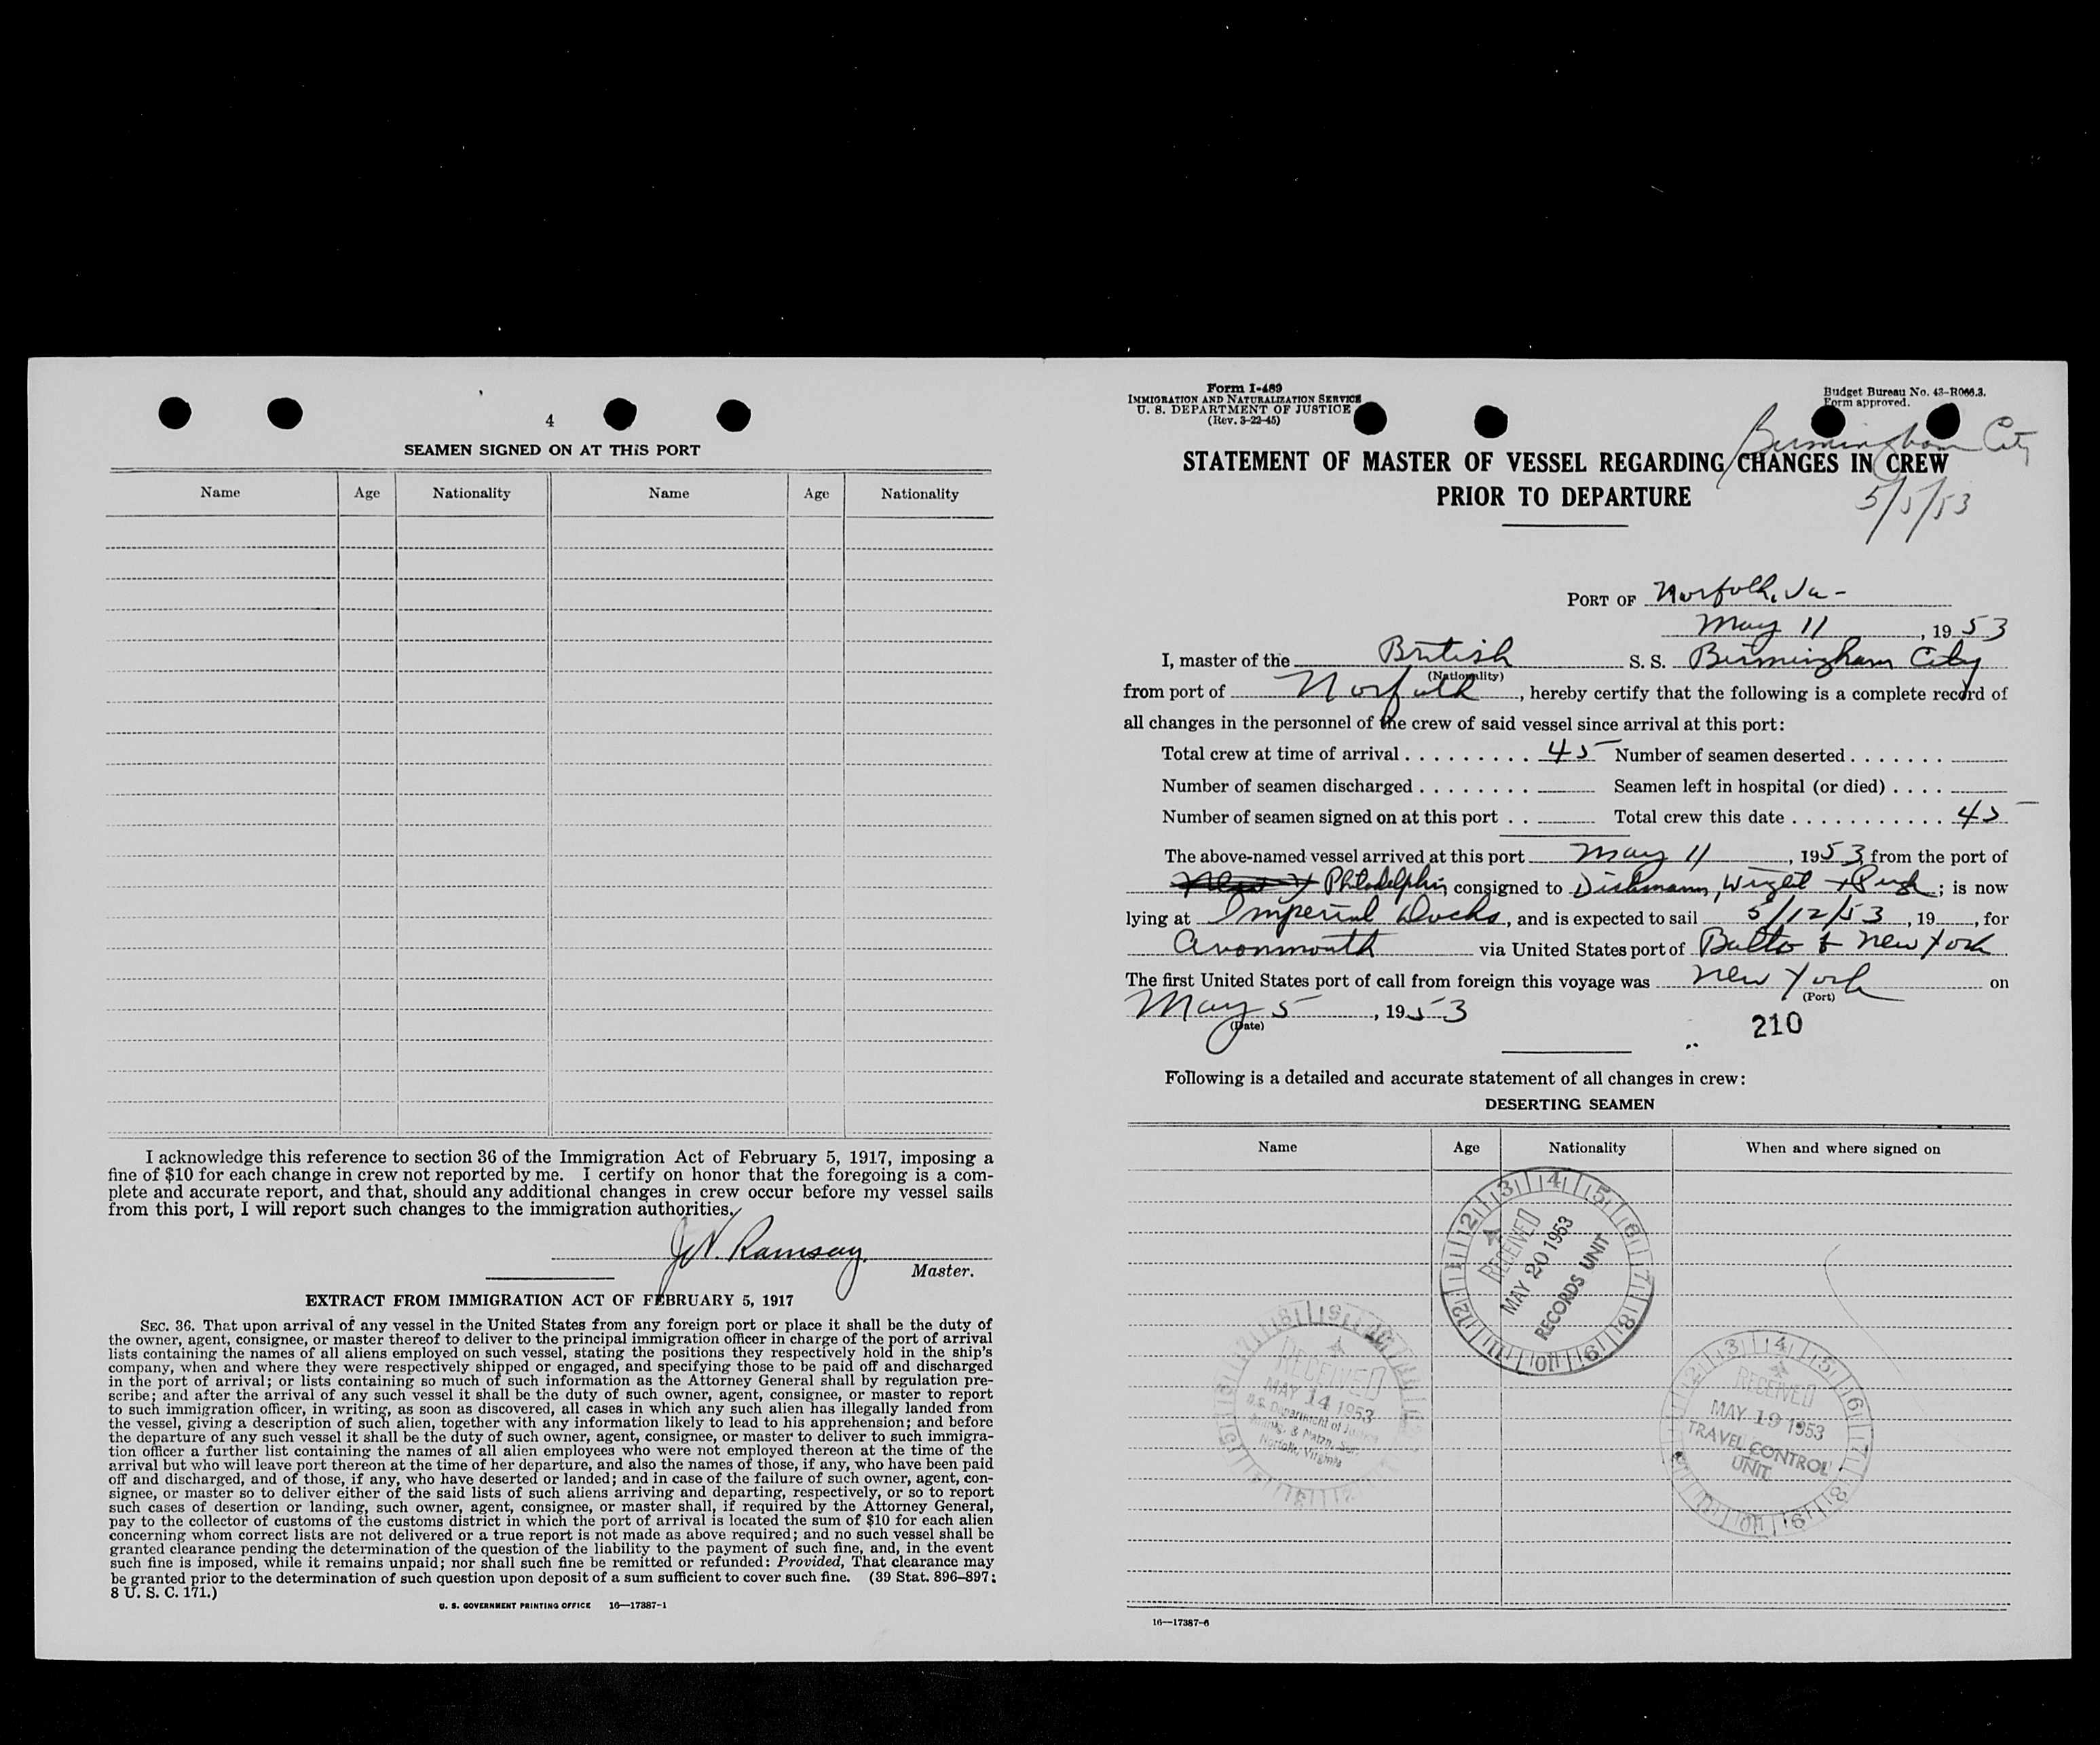 4
SEAMEN SIGNED ON AT THIS PORT
Name Age Nationality Name Age Nationality
I acknowledge this reference to section 36 of the Immigration Act of February 5, 1917, imposing a
fine of $10 for each change in crew not reported by me. I certify on honor that the foregoing is a com-
plete and accurate report, and that, should any additional changes in crew occur before my vessel sails
from this port, I will report such changes to the immigration authorities.
Ramsay
Master.
EXTRACT FROM IMMIGRATION ACT OF FEBRUARY 5, 1917
SEC. 36. That upon arrival of any vessel in the United States from any foreign port or place it shall be the duty of
the owner, agent, consignee, or master thereof to deliver to the principal immigration officer in charge of the port of arrival
lists containing the names of all aliens employed on such vessel, stating the positions they respectively hold in the ship's
company, when and where they were respectively shipped or engaged, and specifying those to be paid off and discharged
in the port of arrival; or lists containing so much of such information as the Attorney General shall by regulation pre-
scribe; and after the arrival of any such vessel it shall be the duty of such owner, agent, consignee, or master to report
to such immigration officer, in writing, as soon as discovered, all cases in which any such alien has illegally landed from
the vessel, giving a description of such alien, together with any information likely to lead to his apprehension; and before
the departure of any such vessel it shall be the duty of such owner, agent, consignee, or master to deliver to such immigra-
tion officer a further list containing the names of all alien employees who were not employed thereon at the time of the
arrival but who will leave port thereon at the time of her departure, and also the names of those, if any, who have been paid
off and discharged, and of those, if any, who have deserted or landed; and in case of the failure of such owner, agent, con-
signee, or master so to deliver either of the said lists of such aliens arriving and departing, respectively, or so to report
such cases of desertion or landing, such owner, agent, consignee, or master shall, if required by the Attorney General,
pay to the collector of customs of the customs district in which the port of arrival is located the sum of $10 for each alien
concerning whom correct lists are not delivered or a true report is not made as above required; and no such vessel shall be
granted clearance pending the determination of the question of the liability to the payment of such fine, and, in the event
such fine is imposed, while it remains unpaid; nor shall such fine be remitted or refunded: Provided, That clearance may
be granted prior to the determination of such question upon deposit of a sum sufficient to cover such fine. (39 Stat. 896–897;
8 U. S. C. 171.)
U. S. GOVERNMENT PRINTING OFFICE 16—17387-1
Form I-489
IMMIGRATION AND NATURALIZATION SERVICE
U. S. DEPARTMENT OF JUSTICE
(Rev. 3-22-45)
Budget Bureau No. 43-R066.3.
Form approved.
Birmingham City
STATEMENT OF MASTER OF VESSEL REGARDING CHANGES IN CREW
PRIOR TO DEPARTURE
5/5/53
PORT OF Norfolk, Va-
May 11, 1953
I, master of the British S. S. Birmingham City
(Nationality)
from port of Norfolk, hereby certify that the following is a complete record of
all changes in the personnel of the crew of said vessel since arrival at this port:
Total crew at time of arrival . . . . . . . . . 45 Number of seamen deserted . . . . . . .
Number of seamen discharged . . . . . . . . Seamen left in hospital (or died) . . . .
Number of seamen signed on at this port . . Total crew this date . . . . . . . . . . . 45
The above-named vessel arrived at this port May 11, 1953 from the port of
Philadelphia, consigned to Dichmann, Wright + Pugh; is now
lying at Imperial Docks, and is expected to sail 5/12/53, 19 , for
Avonmouth via United States port of Balto & New York
The first United States port of call from foreign this voyage was New York on
(Port)
May 5, 1953
(Date)
210
Following is a detailed and accurate statement of all changes in crew:
DESERTING SEAMEN
Name Age Nationality When and where signed on
RECEIVED
MAY 20 1953
RECORDS UNIT
RECEIVED
MAY 14 1953
U.S. Department of Justice
Immig. & Natzn. Serv.
Norfolk, Virginia
RECEIVED
MAY 19 1953
TRAVEL CONTROL
UNIT
16—17387-6